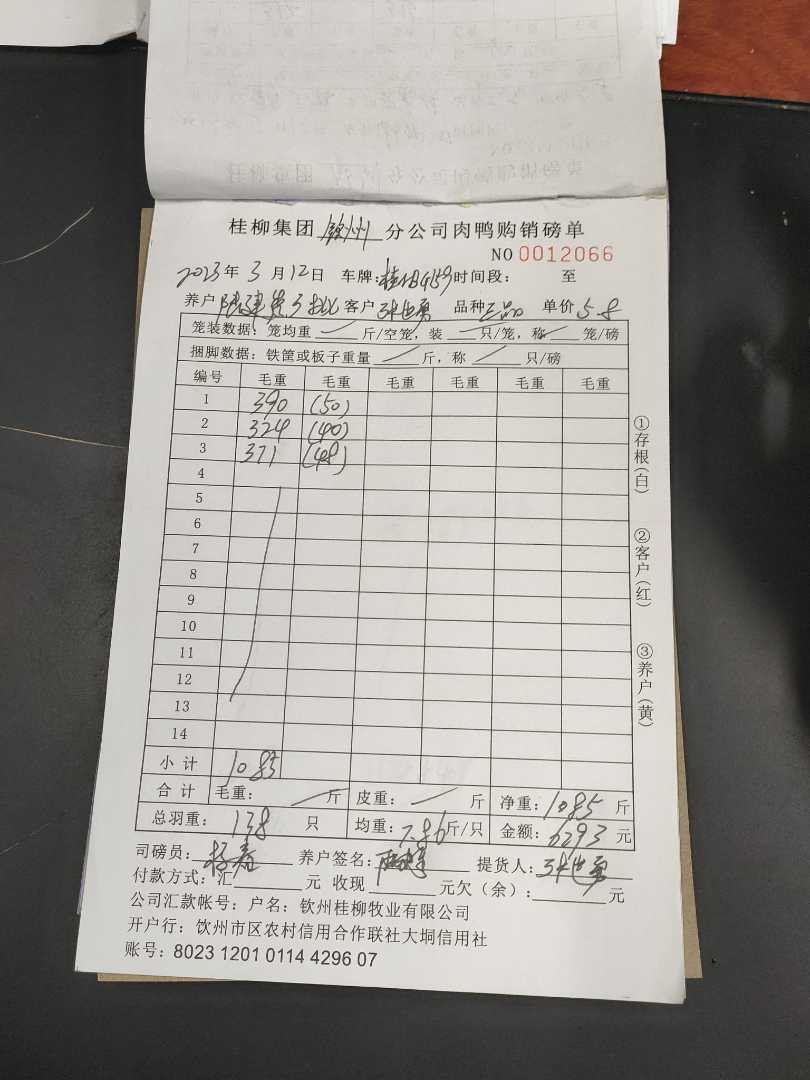 桂柳集团 钦州 分公司肉鸭购销磅单
NO 0012066
2023年3月12日 车牌:桂 4159 时间段: 至
养户 陆建 客户 张世勇 品种 三品 单价 5.8
笼装数据: 笼均重 斤/空笼, 装 只/笼, 称 笼/磅
捆脚数据: 铁筐或板子重量 斤, 称 只/磅
编号 毛重 毛重 毛重 毛重 毛重 毛重
1 390 (50)
2 324 (40)
3 371 (48)
4
5
6
7
8
9
10
11
12
13
14
小计 1085
合计 毛重: 斤 皮重: 斤 净重: 1085 斤
总羽重: 138 只 均重: 7.86 斤/只 金额: 6293 元
司磅员: 杨春 养户签名: 提货人: 张世勇
付款方式: 汇 元 收现 元欠(余): 元
公司汇款帐号: 户名: 钦州桂柳牧业有限公司
开户行: 钦州市区农村信用合作联社大垌信用社
账号: 8023 1201 0114 4296 07
①存根(白)
②客户(红)
③养户(黄)